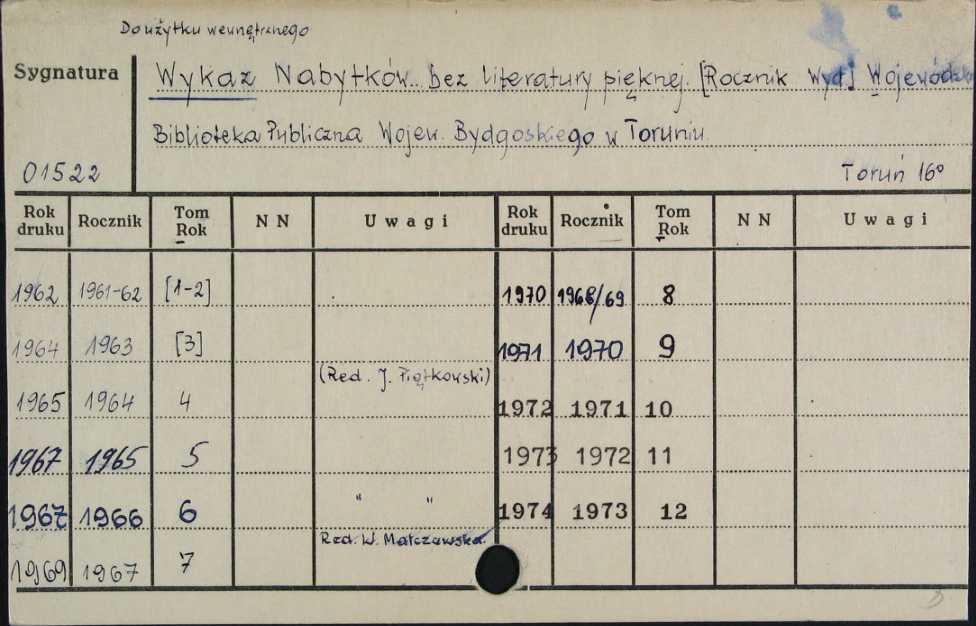 Do użytku wewnętrznego
Sygnatura
Wykaz Nabytków.. bez literatury pięknej. [Rocznik Wyd]
Biblioteka Publiczna Wojew. Bydgoskiego w Toruniu.
01522
Toruń 16°
Rok druku Rocznik Tom Rok NN Uwagi Rok druku Rocznik Tom Rok NN Uwagi
1962 1961-62 [1-2] 1970 1968/69 8
1964 1963 [3] 1971 1970 9
(Red. J. Piątkowski)
1965 1964 4 1972 1971 10
1967 1965 5 1973 1972 11
1967 1966 6 " " 1974 1973 12
Red. W. Matczewska.
1969 1967 7